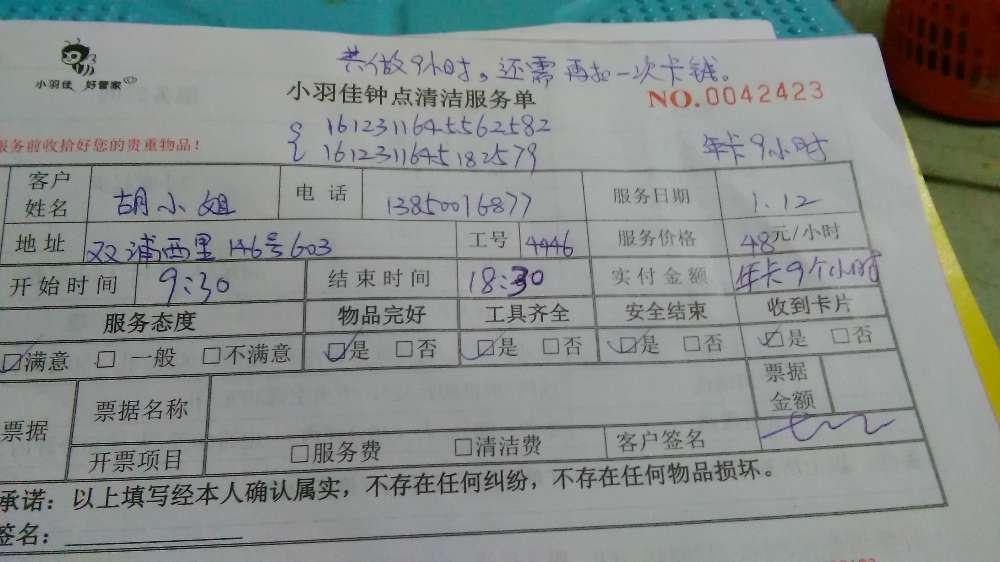 共做9小时。还需再扣一次卡钱。
小羽佳 好管家
小羽佳钟点清洁服务单
NO.0042423
1612311645562582
1612311645182579
年卡9小时
服务前收拾好您的贵重物品!
客户姓名 胡小姐 电话 13850076877 服务日期 1.12
地址 双浦西里146号603 工号 4446 服务价格 48元/小时
开始时间 9:30 结束时间 18:30 实付金额 年卡9个小时
服务态度 物品完好 工具齐全 安全结束 收到卡片
☑满意 □一般 □不满意 ☑是 □否 ☑是 □否 ☑是 □否 ☑是 □否
票据 票据名称 票据金额
开票项目 □服务费 □清洁费 客户签名
承诺:以上填写经本人确认属实,不存在任何纠纷,不存在任何物品损坏。
签名: